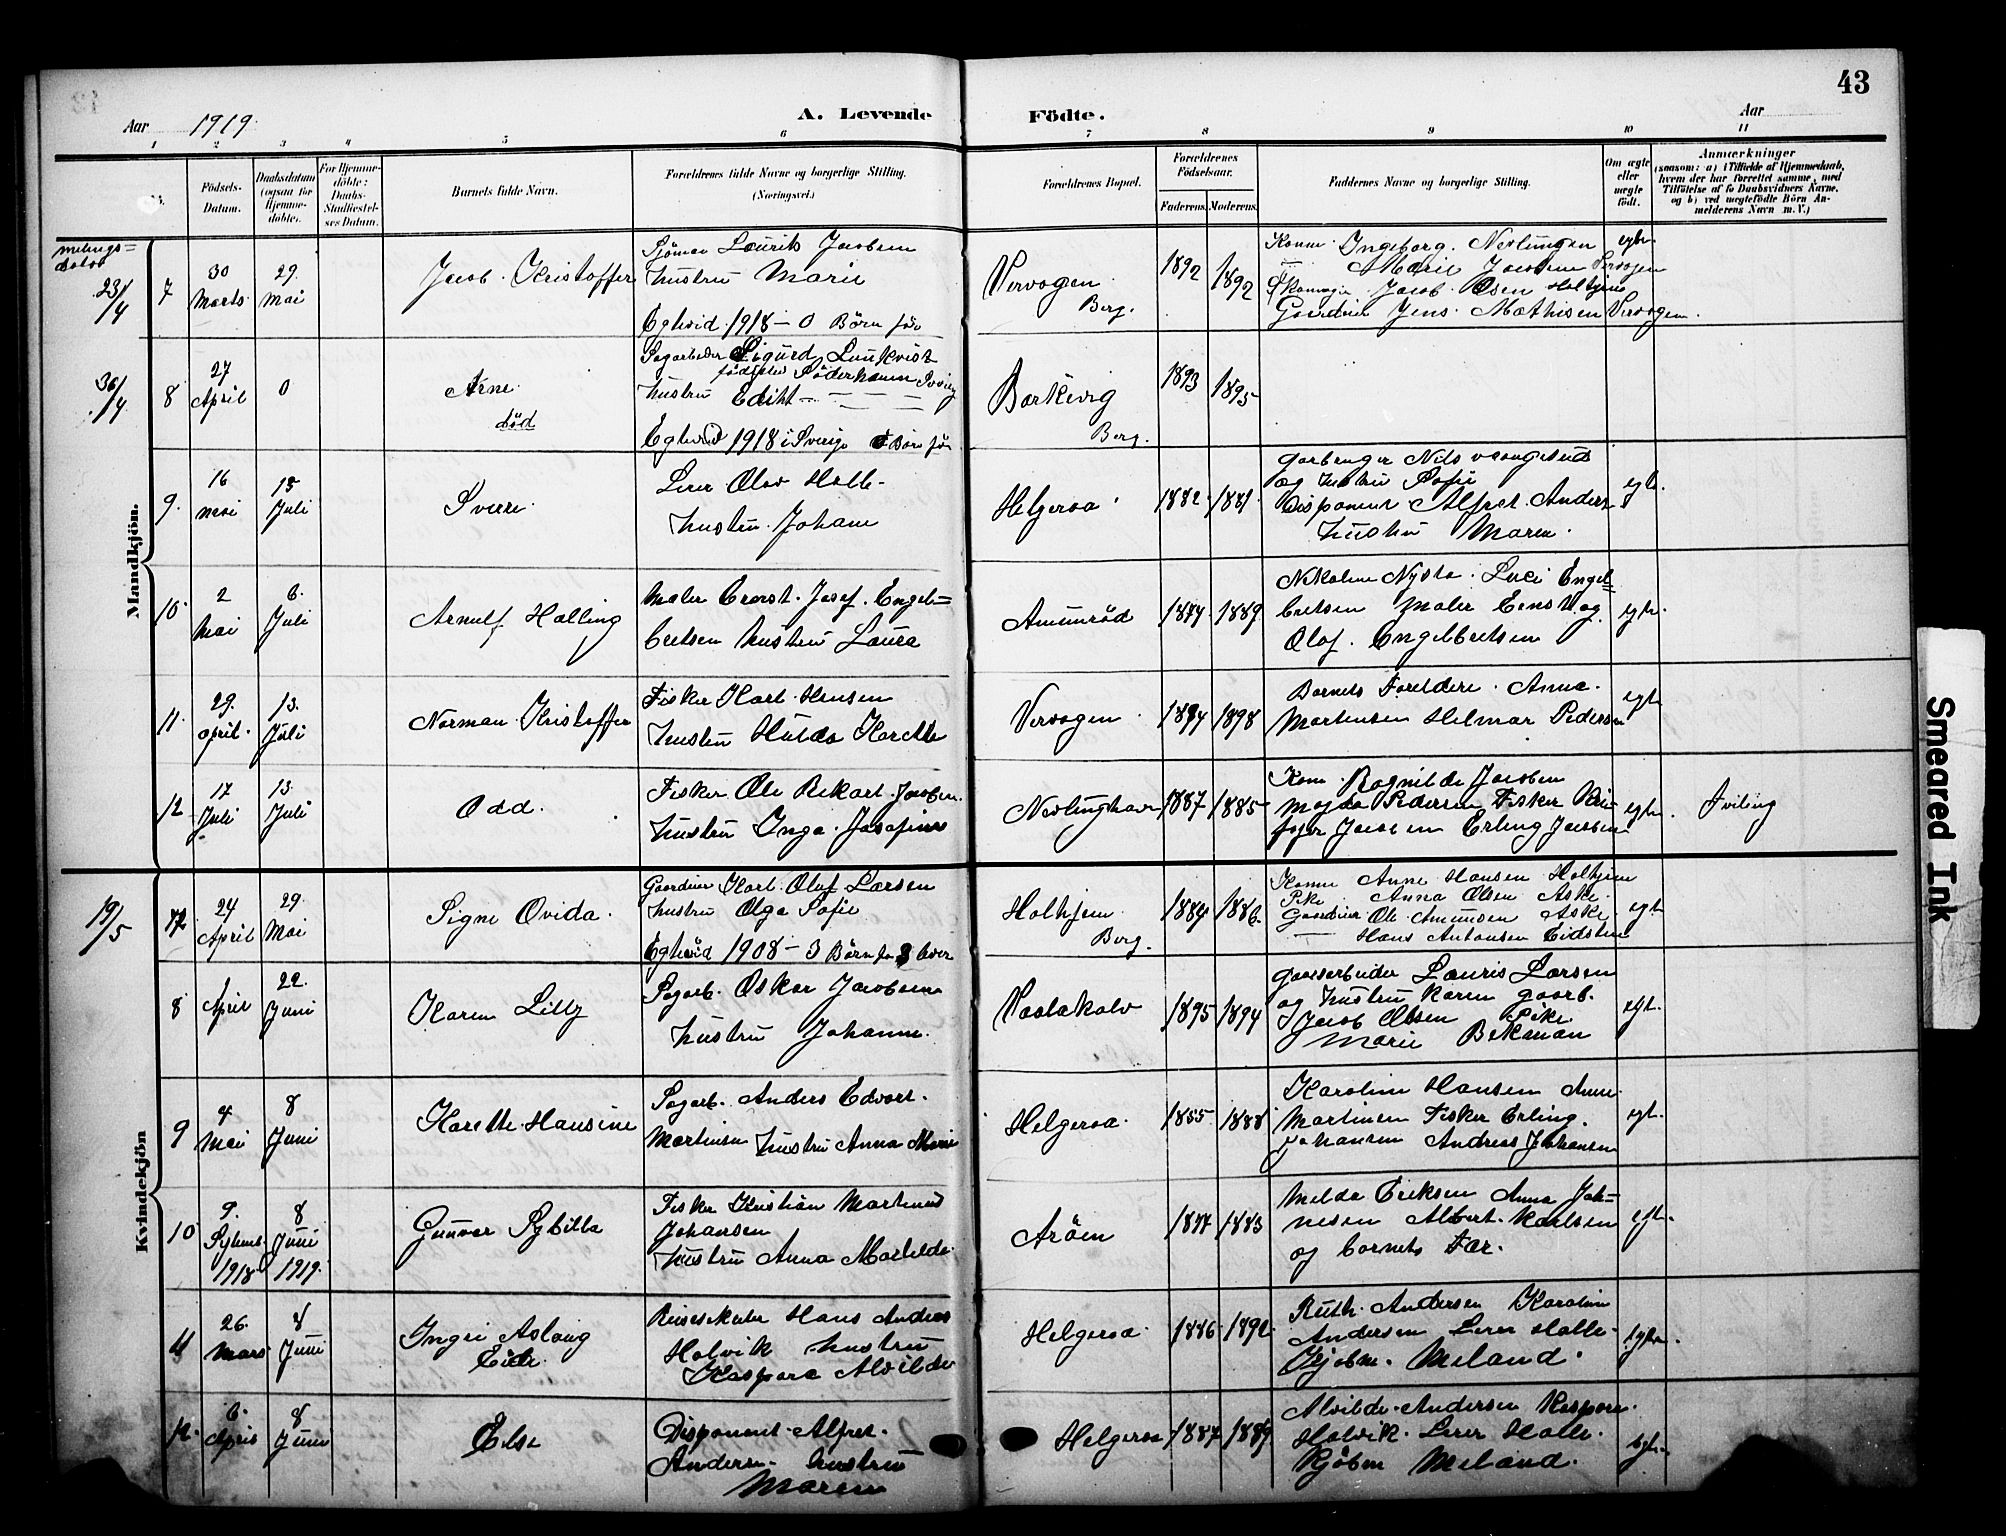 43
Aar 1919.
A. Levende
Födte.
Aar
1 2 3 4 5 6 7 8 9 10 11
Födsels-
Datum.
Daabsdatum
(ogsaa for
Hjemme-
döbte).
For Hjemme-
döbte:
Daabs-
Stadfæstel-
ses Datum.
Barnets fulde Navn.
Forældrenes fulde Navne og borgerlige Stilling.
(Næringsvei.)
Forældrenes Bopæl.
Forældrenes
Födselsaar.
Faderens. Moderens.
Faddernes Navne og borgerlige Stilling.
Om ægte
eller
uægte
födt.
Anmærkninger
(saasom: a) i Tilfælde af Hjemmedaab,
hvem der har forrettet samme, med
Tilföielse af to Daabsvidners Navne,
og b) ved uægtefödte Börn An-
melderens Navn m. V.)
Mandkjön.
23/4
7
30
Marts
29.
Mai
Jacob Kristoffer
Sjöman Lauritz Jacobsen
hustru Marie
Egtevid 1918 – 0 Börn för
Vervogen
Berg.
1892
1892
Kone Ingeborg Nevlungen
Marie Jacobsen Vervogen
Jacob Olsen Holtjem
Gaardeier Jens Mathisen Vervogen.
egte
30/4
8
27
April
0
Arne
död
Sagarbeider Sigurd Lundkvist
hustru Edith
Egtevid 1918 i Sverige 0 Börn för
Barkevig
Berg.
1893
1895
9.
16
mai
13
Juli
Sverre.
Lærer Olav Holle
hustru Johane
Helgeroa
1882
1881
og hustru Sofie
Disponent Alfret Anders
hustru Maren.
egte.
10
2
Mai
6.
Juli
Arnulf Halling
Maler Ernst Josef Engel=
bretsen hustru Laura
Amunröd
1874
1889
Nikoline Nysto. Luci Engel=
bretsen Maler Ernst og
Olaf. Engelbretsen
egte.
11.
29.
april.
13.
Juli
Norman Kristoffer
Fisker Karl Hansen
hustru Hulda Karette
Vervogen
1894
1898
Barnets Foreldere. Anna.
Martensen Helmar Pedersen
egte
12
17
Juli
13.
Juli
Odd.
Fisker Ole Rikart Jacobsen.
hustru Inga Josefine
Nevlunghavn
1887
1885
Kone Ragnilde Jacobsen
Magda Pedersen Fisker Kris-
tofer Jacobsen Erling Jacobsen
egte.
Tviling
Kvindekjön
19/5
7
24
April
29.
Mai
Signe Ovida.
Gaardeier Karl Oluf Larsen
hustru Olga Sofie
Egtevid 1908 – 3 Börn för 3 lever
Holtjem
Berg.
1884
1886.
Kone Anne Hansen Holtjem
Pike Anna Olsen Aske
Gaardeier Ole Amundsen Aske
Hans Antonsen Eidsten
egte
8
April
22.
Juni
Karen Lilly
Sagarb. Oskar Jacobsen
hustru Johanne.
1895
1894
Gaardsarbeider Lauris Larsen
og hustru Karen gaarb.
Jacob Olsen Pike
Marie Bekman
egte.
9
4
Mai
8
Juni
Karette Hansine
Sagarb. Anders Edvart.
Martinsen hustru Anna Marie
Helgeroa.
1855
1888
Karoline Hansen Anne
Martinsen Fisker Erling.
Johansen Andreas Johansen
egte.
10
9.
Sptemb
1918
8
Juni
1919.
Gunvor Sybilla
Fisker Kristian Martinus
Johansen
hustru Anna Matilde.
Aröen
1877
1883
Milda Eriksen Anna Joha=
nesen Albert Karlsen
og barnets Far.
egte.
11
26.
Mars
8
Juni
Ingri Aslaug
Eide
Reisesekretær Hans Andreas
Halvik hustru
Kaspara Alvilde
Helgeroa.
1886
1892
Ruth Andersen Karoline
Andersen Lærer Halle.
Kjøbm. Meland.
egte.
12.
6.
April
8
Juni
Else
Disponent Alfret.
Andersen hustru
Maren
Helgeroa
1887
1889
Alvilde Andersen Kaspara.
Halvik. Lærer Halle.
Kjøbm Meland.
egte.
Smeared Ink